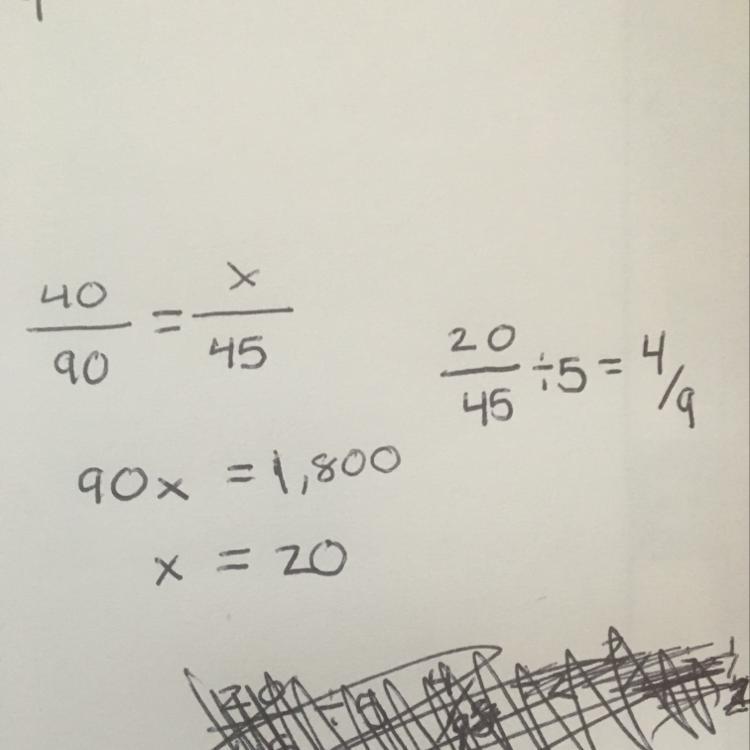 40/90 = x/45
20/45 ÷5 = 4/9
90x = 1,800
x = 20